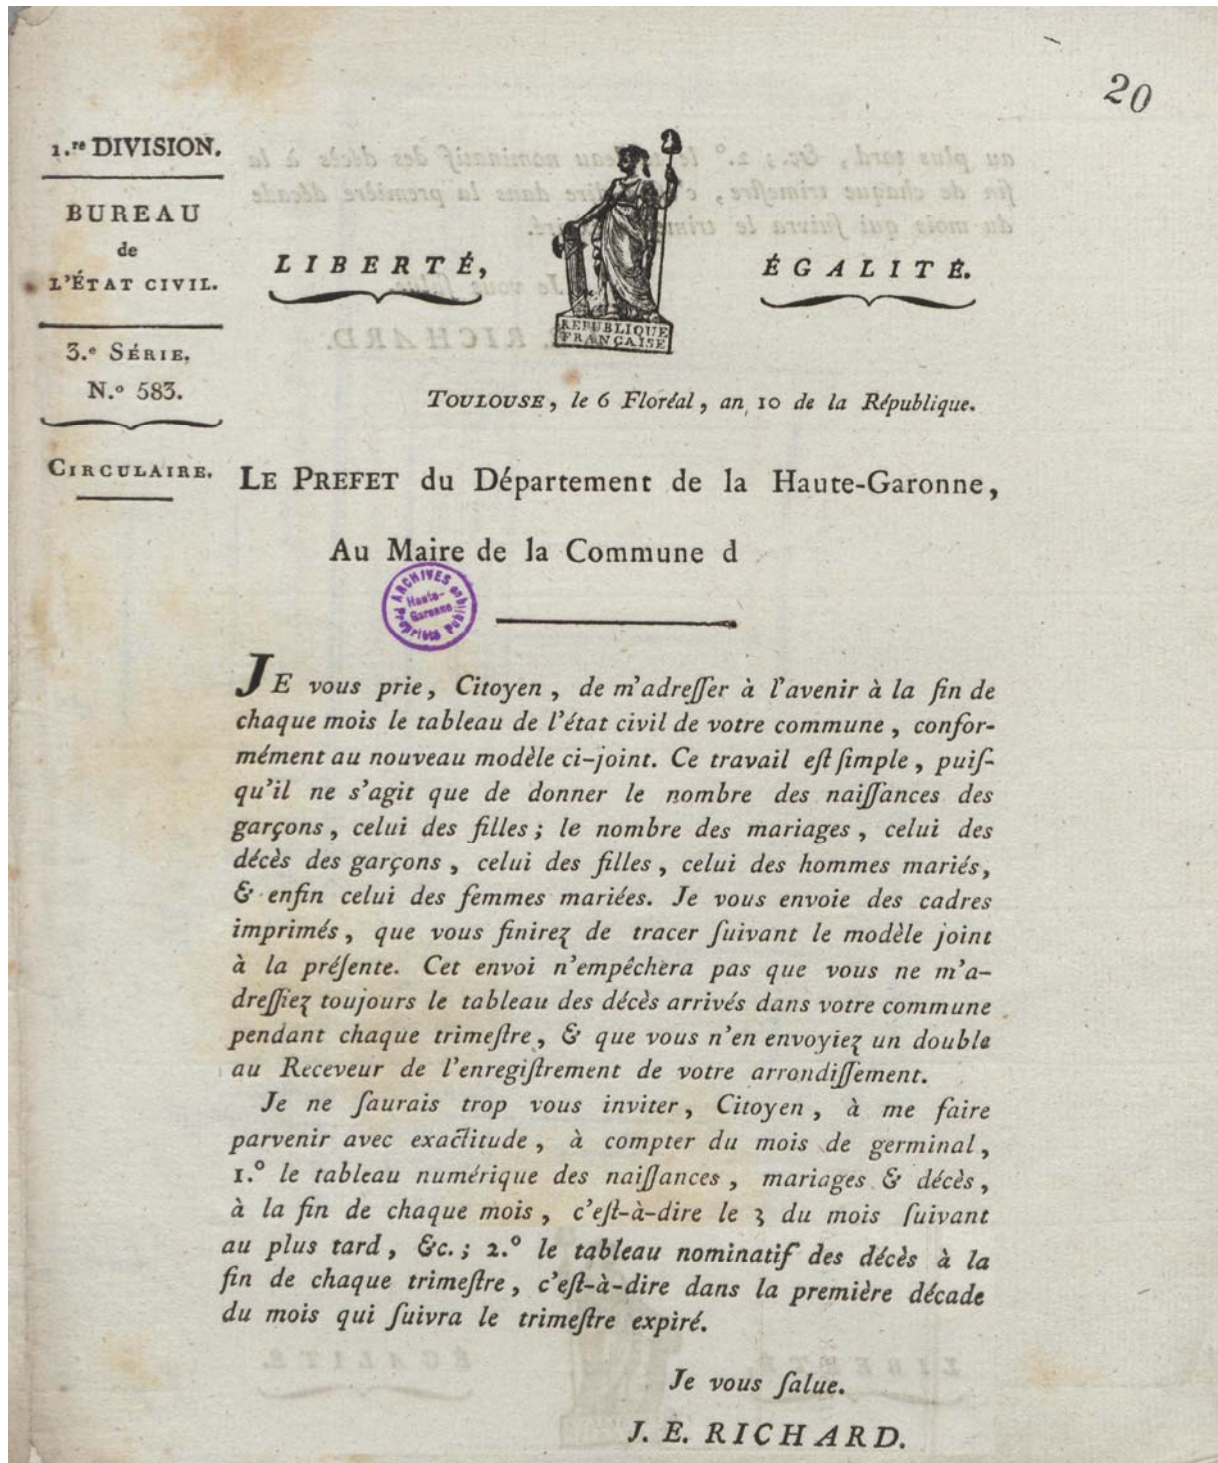 20
1.re DIVISION.
BUREAU
de
L'ÉTAT CIVIL.
3.e SÉRIE.
N.o 583.
CIRCULAIRE.
LIBERTÉ,
ÉGALITÉ.
REPUBLIQUE
FRANÇAISE
TOULOUSE, le 6 Floréal, an 10 de la République.
LE PREFET du Département de la Haute-Garonne,
Au Maire de la Commune d
ARCHIVES
Haute-
Garonne
Propriété Publi
JE vous prie, Citoyen, de m'adreſſer à l'avenir à la fin de
chaque mois le tableau de l'état civil de votre commune, confor-
mément au nouveau modèle ci-joint. Ce travail eſt ſimple, puiſ-
qu'il ne s'agit que de donner le nombre des naiſſances des
garçons, celui des filles; le nombre des mariages, celui des
décès des garçons, celui des filles, celui des hommes mariés,
& enfin celui des femmes mariées. Je vous envoie des cadres
imprimés, que vous finirez de tracer ſuivant le modèle joint
à la préſente. Cet envoi n'empêchera pas que vous ne m'a-
dreſſiez toujours le tableau des décès arrivés dans votre commune
pendant chaque trimeſtre, & que vous n'en envoyiez un double
au Receveur de l'enregiſtrement de votre arrondiſſement.
Je ne ſaurais trop vous inviter, Citoyen, à me faire
parvenir avec exactitude, à compter du mois de germinal,
1.o le tableau numérique des naiſſances, mariages & décès,
à la fin de chaque mois, c'eſt-à-dire le 3 du mois ſuivant
au plus tard, &c.; 2.o le tableau nominatif des décès à la
fin de chaque trimeſtre, c'eſt-à-dire dans la première décade
du mois qui ſuivra le trimeſtre expiré.
Je vous ſalue.
J. E. RICHARD.